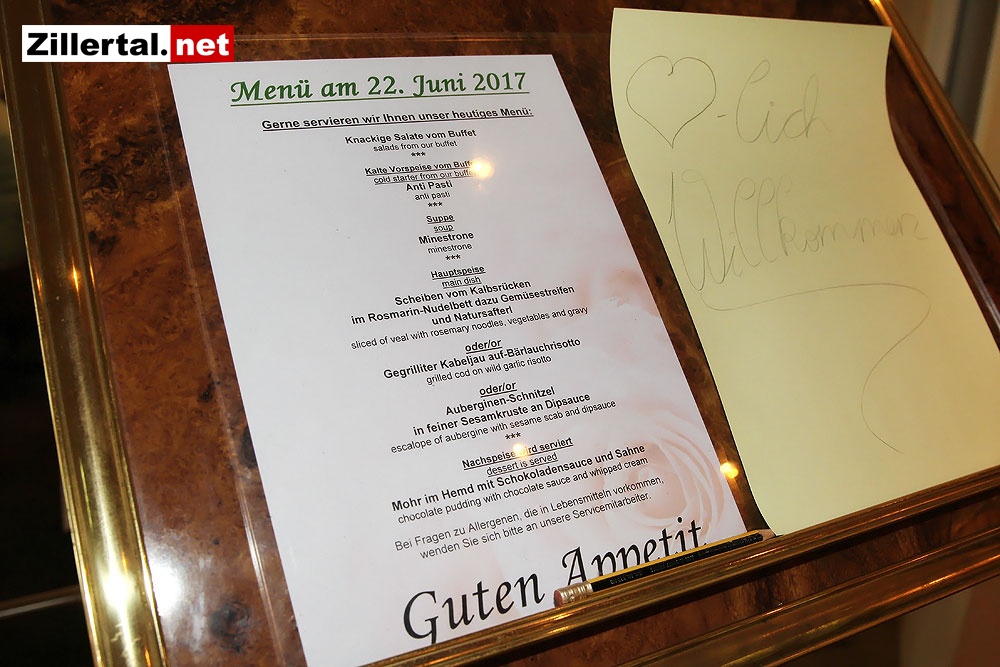 Zillertal.net
Menü am 22. Juni 2017
Gerne servieren wir Ihnen unser heutiges Menü:
Knackige Salate vom Buffet
salads from our buffet
***
Kalte Vorspeise vom Buffet
cold starter from our buffet
Anti Pasti
anti pasti
***
Suppe
soup
Minestrone
minestrone
***
Hauptspeise
main dish
Scheiben vom Kalbsrücken
im Rosmarin-Nudelbett dazu Gemüsestreifen
und Natursafterl
sliced of veal with rosemary noodles, vegetables and gravy
oder/or
Gegrilliter Kabeljau auf-Bärlauchrisotto
grilled cod on wild garlic risotto
oder/or
Auberginen-Schnitzel
in feiner Sesamkruste an Dipsauce
escalope of aubergine with sesame scab and dipsauce
***
Nachspeise wird serviert
dessert is served
Mohr im Hemd mit Schokoladensauce und Sahne
chocolate pudding with chocolate sauce and whipped cream
Bei Fragen zu Allergenen, die in Lebensmitteln vorkommen,
wenden Sie sich bitte an unsere Servicemitarbeiter.
Guten Appetit
-lich
Willkommen